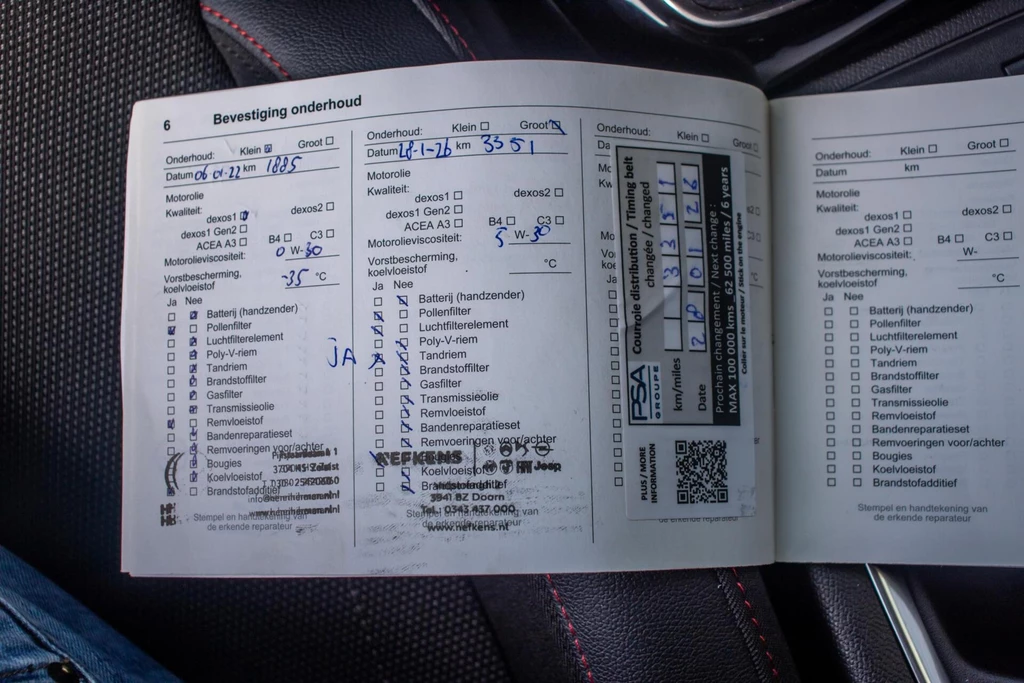 6 Bevestiging onderhoud
Onderhoud: Klein ☒ Groot ☐
Datum 06 01-22 km 1885
Motorolie
Kwaliteit:
dexos1 ☑ dexos2 ☐
dexos1 Gen2 ☐
ACEA A3 ☐ B4 ☐ C3 ☐
Motorolieviscositeit: 0 W-30
Vorstbescherming,
koelvloeistof -35 °C
Ja Nee
Batterij (handzender)
Pollenfilter
Luchtfilterelement
Poly-V-riem
Tandriem
Brandstoffilter
Gasfilter
Transmissieolie
Remvloeistof
Bandenreparatieset
Remvoeringen voor/achter
Bougies
Koelvloeistof
Brandstofadditief
Stempel en handtekening van
de erkende reparateur
Onderhoud: Klein ☐ Groot ☒
Datum 28-1-26 km 3351
Motorolie
Kwaliteit:
dexos1 ☐ dexos2 ☐
dexos1 Gen2 ☐
ACEA A3 ☐ B4 ☐ C3 ☐
Motorolieviscositeit: 5 W-30
Vorstbescherming,
koelvloeistof °C
Ja Nee
Batterij (handzender)
Pollenfilter
Luchtfilterelement
Poly-V-riem
JA Tandriem
Brandstoffilter
Gasfilter
Transmissieolie
Remvloeistof
Bandenreparatieset
Remvoeringen voor/achter
NEFKENS Jeep
Koelvloeistof
Brandstofadditief
3941 BZ Doorn
Tel.: 0343 437 000
Stempel en handtekening van
de erkende reparateur
www.nefkens.nl
Onderhoud: Klein ☐ Groot ☐
PSA
GROUPE
Courroie distribution / Timing belt
changée / changed
km/miles 3351
Date 280126
Prochain changement / Next change :
MAX 100 000 kms_62 500 miles / 6 years
Coller sur le moteur / Stick on the engine
PLUS / MORE
INFORMATION
de erkende reparateur
Onderhoud: Klein ☐ Groot ☐
Datum km
Motorolie
Kwaliteit:
dexos1 ☐ dexos2 ☐
dexos1 Gen2 ☐
ACEA A3 ☐ B4 ☐ C3 ☐
Motorolieviscositeit: W-
Vorstbescherming,
koelvloeistof °C
Ja Nee
Batterij (handzender)
Pollenfilter
Luchtfilterelement
Poly-V-riem
Tandriem
Brandstoffilter
Gasfilter
Transmissieolie
Remvloeistof
Bandenreparatieset
Remvoeringen voor/achter
Bougies
Koelvloeistof
Brandstofadditief
Stempel en handtekening van
de erkende reparateur